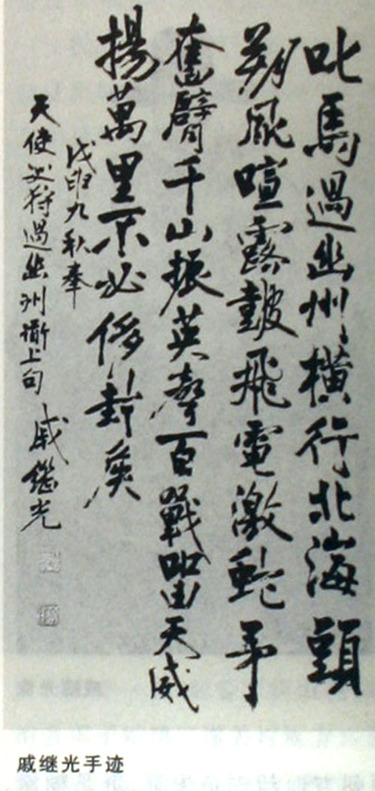 叱馬過幽州橫行北海頭
朔風喧露鼓飛電激蛇矛
奮臂千山振英聲百戰留天威
揚萬里不必侈封侯
戊申九秋奉
天使巡狩過幽州上句 戚繼光
戚继光手迹